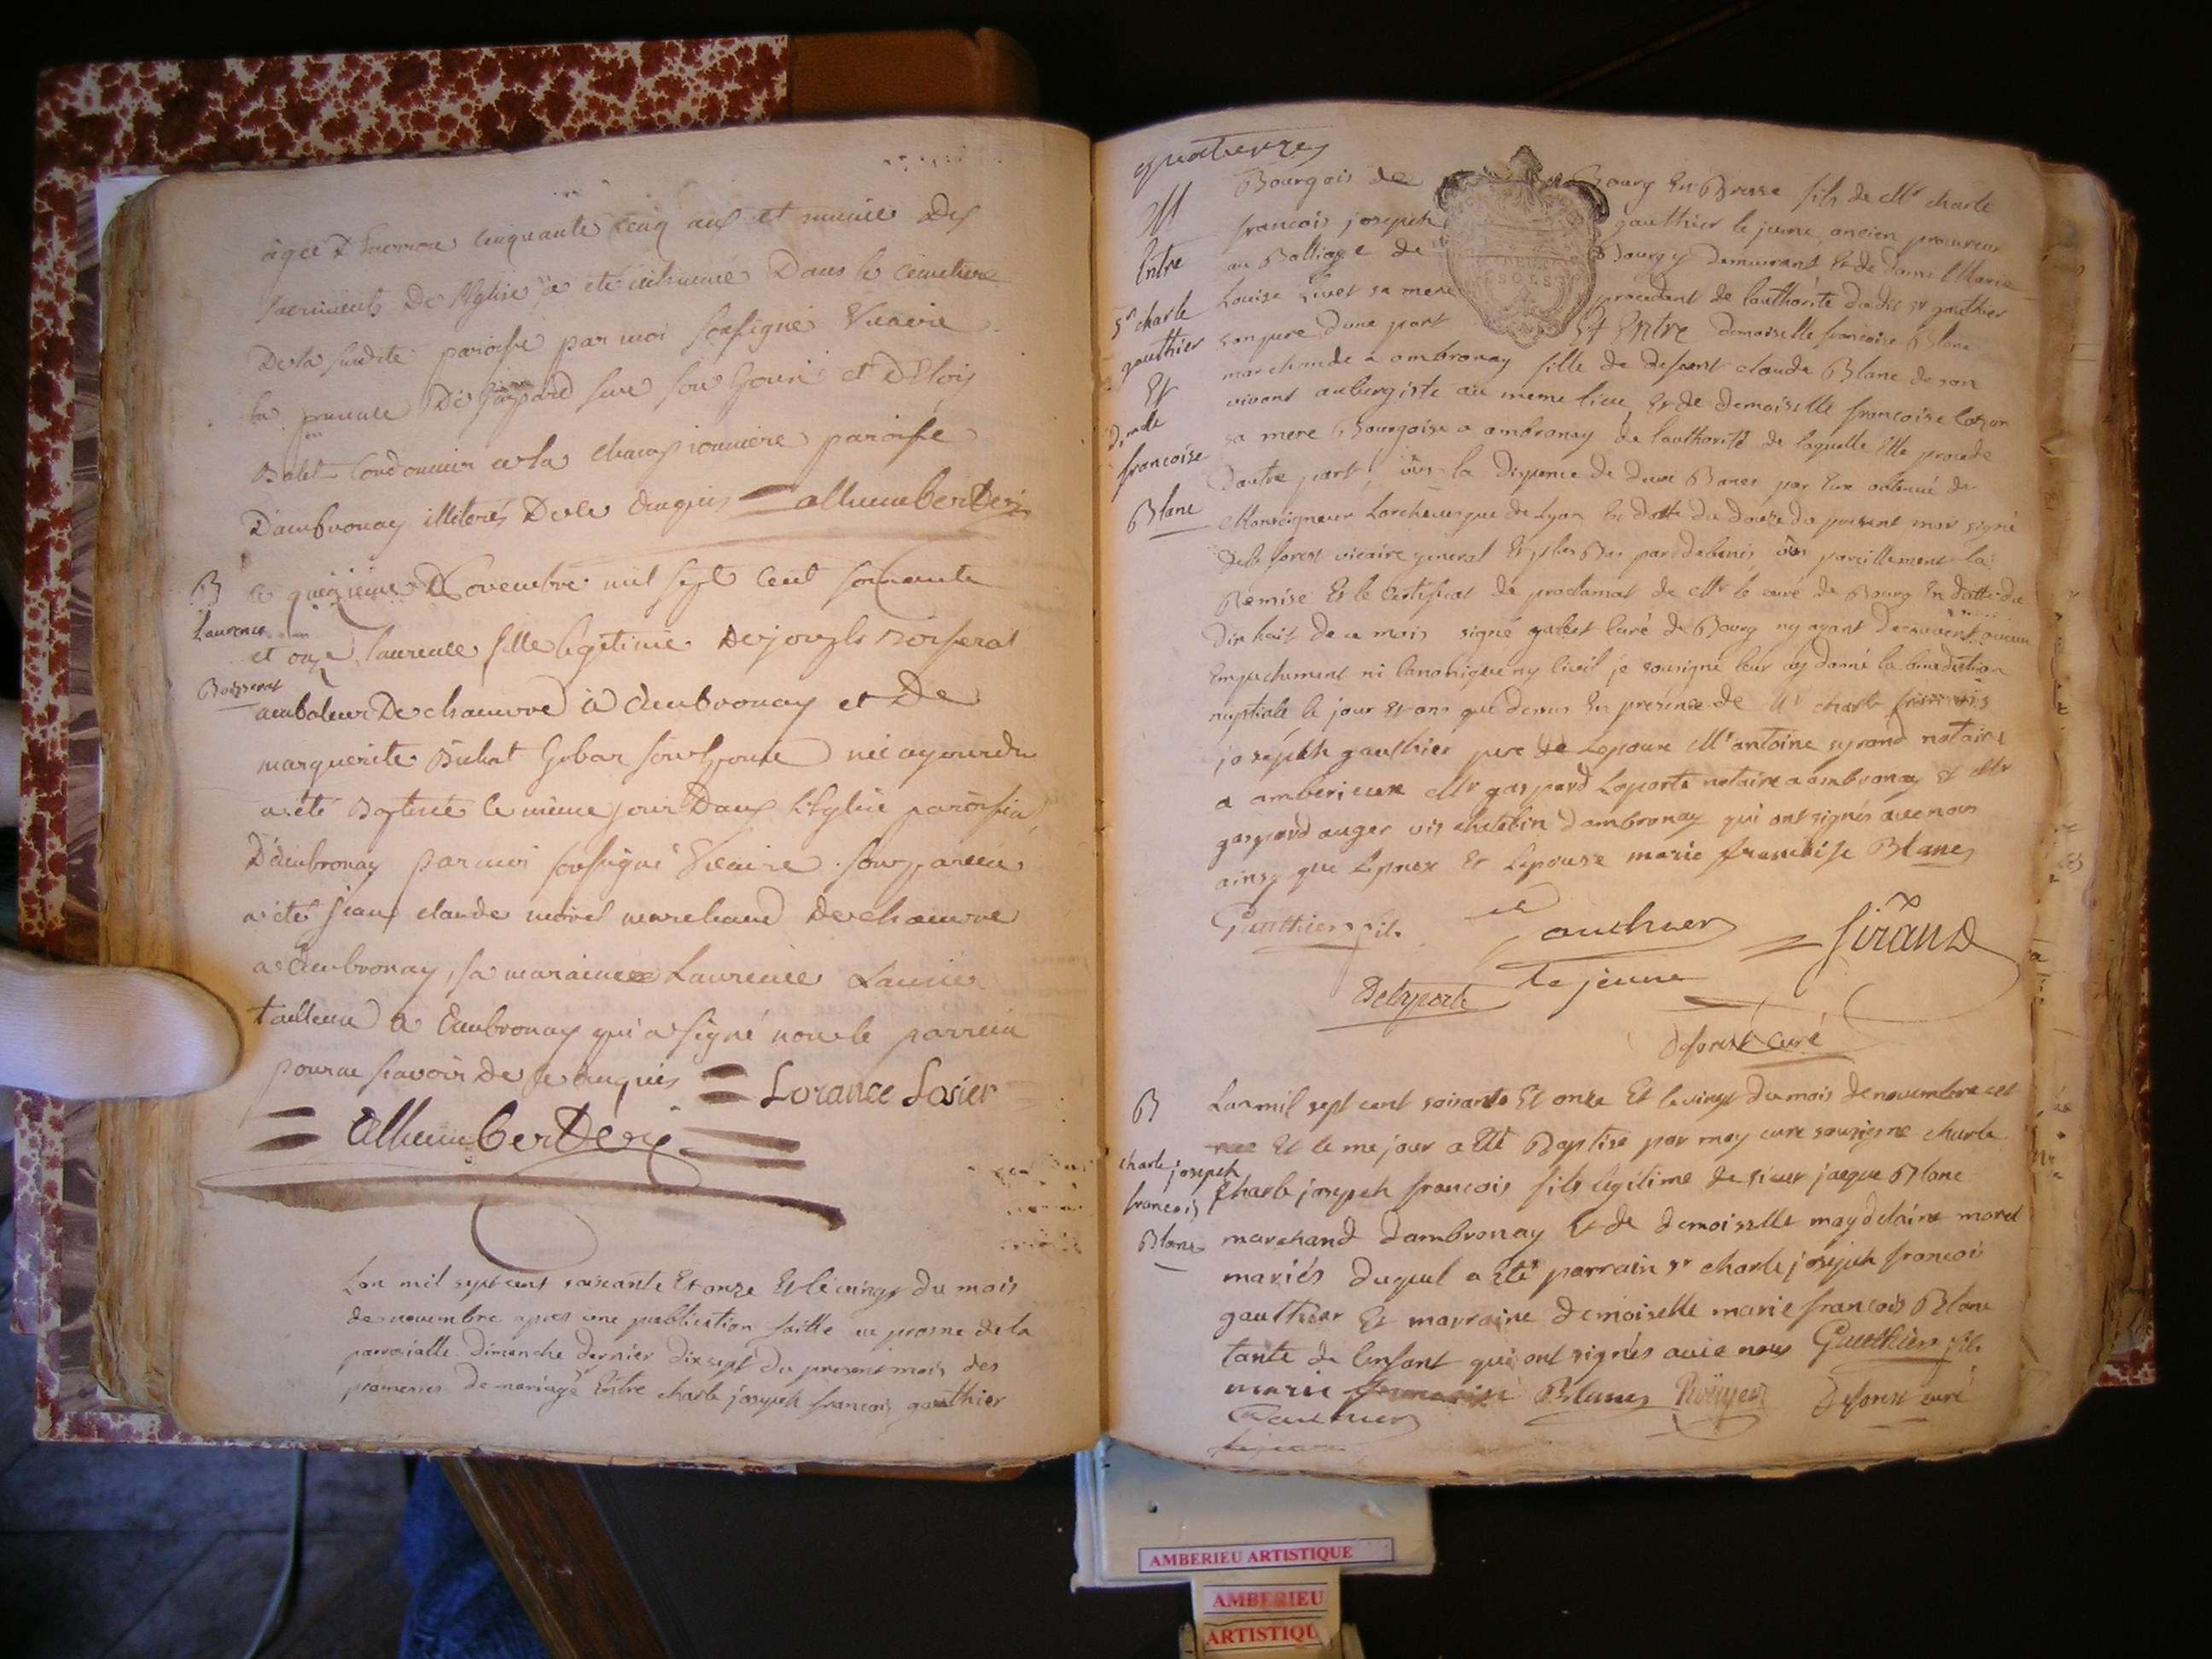 âgée d'environ cinquante cinq ans et munie des
sacrements De l'Eglise a été inhumée Dans le cimetiere
De la susdite paroisse par moi soussigné Vicaire
la presence De gaspard
cordonnier a la championniere paroisse
D'ambronay illiterés De ce Enquis = allhumbert
B
Laurence
Boisserat
le quinzieme Novembre mil sept Cent soixante
et onze, laurence fille legitime De joseph Boisserat
De chauvre à Ambronay et De
marguerite née ajourdui
a été Baptisée le même jour Dans l'Eglise paroissia
D'ambronay par moi soussigné Vicaire. son parrein
a été jean claude morel marchand De chauvre
a ambronay, sa maraine Laurence
tailleuse a Ambronay qui a signé non le parrein
pour ne scavoir De ce enquis = Lorance Losier
L'an mil sept cent soixante Et onze Et le vingt du mois
de novembre apres une publication faitte au prosne de la
dimanche dernier dix sept du present mois des
promesses de mariage Entre charle joseph francois gauthier
quatorze
M
Entre
Sr charle
gauthier
Et
Dmlle
francoise
Blanc
Bourgois de Bourg En Bresse fils de Mr charle
francois joseph gauthier le jeune, ancien procureur
au Balliage de Bourg y demeurant Et de dame Marie
Louise Livet sa mere procedant de l'authorité dudit sr gauthier
son pere d'une part Et Entre demoiselle francoise Blanc
marchande a ambronay fille de defunt claude Blanc de son
vivant aubergiste au meme lieu, Et de demoiselle francoise
sa mere Bourgoise a ambronay de l'authorité de laquelle Elle procede
d'autre part, vûs la dispense de deux Bancs par Eux obtenué de
Monseigneur L'archeveque de Lyon En datte du douze du present mois signé
vicaire general vûs pareillement la
Remise Et le Certificat de proclamat de Mr le curé de Bourg En datte du
dix huit de ce mois signé curé de Bourg ny ayant decouvert aucun
Empechement ni Canonique ny Civil je sousigné leur ay donné la benediction
nuptiale le jour Et an que dessus En presence de Mr charle francois
joseph gauthier pere de L'epoux Mr antoine syrand notaire
a amberieux Mr gaspard Laporte notaire a ambronay Et Mr
gaspard auger vis chatelain d'ambronay qui ont signés avec nous
ainsy que L'epoux Et L'epouse marie francoise Blanc
Gauthier fils
Gauthier
le jeune
Sirand
Delaporte
Deforest curé
B
charle joseph
francois
Blanc
L'an mil sept cent soisante Et onze Et le vingt du mois de novembre est
Et le me jour a Eté Baptise par moy curé sousigné charle
charle joseph francois fils legitime de sieur jacque Blanc
marchand d'ambronay Et de demoiselle maydelaine morel
mariés duquel a Eté parrain sr charle joseph francois
gauthier Et marraine demoiselle marie francois Blanc
tante de l'enfant qui ont signés avec nous Gauthier fils
marie francoise Blanc Roüyer Deforest curé
Gauthier
le jeune
AMBERIEU ARTISTIQUE
AMBERIEU
ARTISTIQU